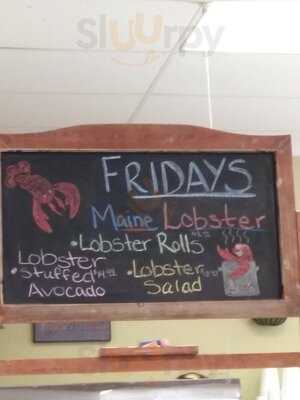 Sluurpy
FRIDAYS
Maine Lobster
• Lobster Rolls
• Lobster Stuffed Avocado
• Lobster Salad